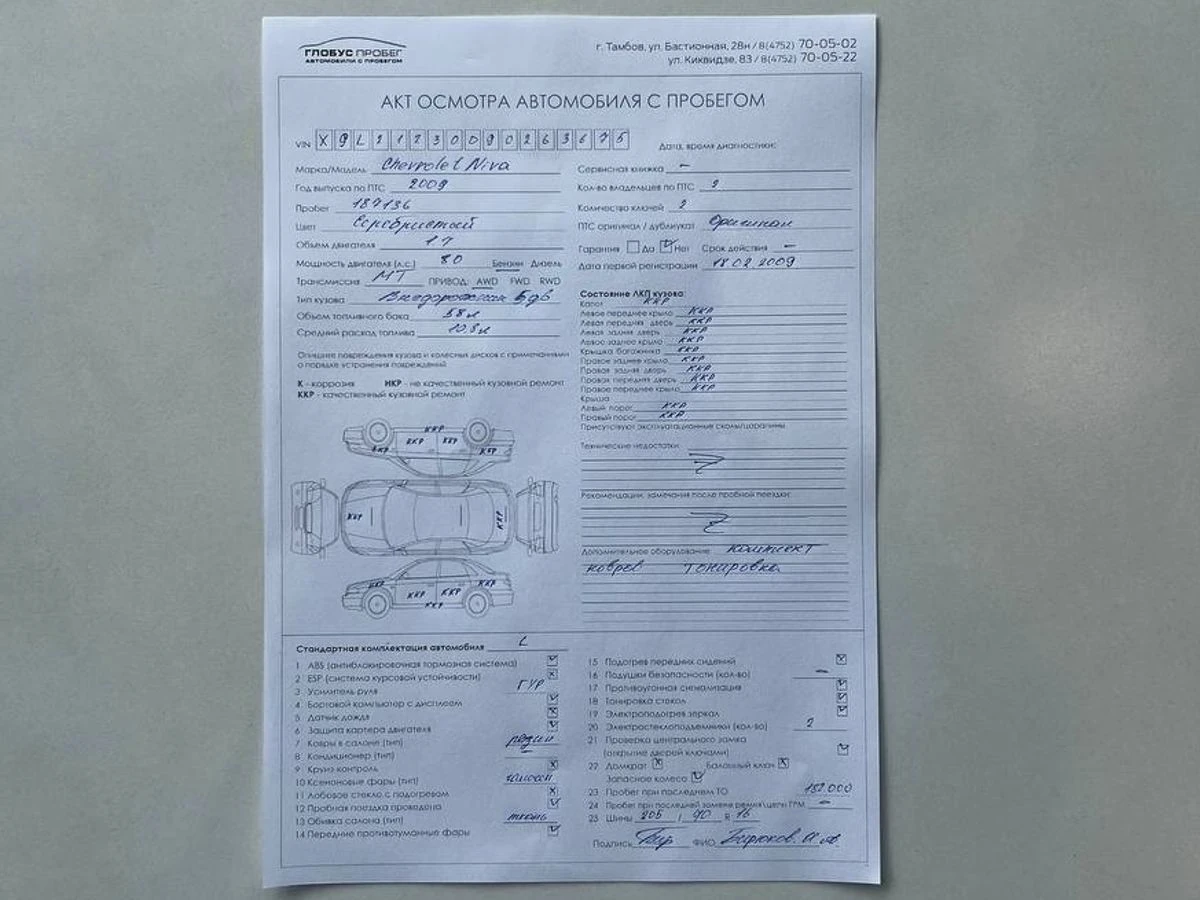 ГЛОБУС ПРОБЕГ
АВТОМОБИЛИ С ПРОБЕГОМ
г. Тамбов, ул. Бастионная, 28н / 8(4752) 70-05-02
ул. Киквидзе, 83 / 8(4752) 70-05-22
АКТ ОСМОТРА АВТОМОБИЛЯ С ПРОБЕГОМ
VIN X9L21230090263675
Дата, время диагностики:
Марка/Модель Chevrolet Niva
Год выпуска по ПТС 2009
Пробег 187136
Цвет Серебристый
Объем двигателя 1.7
Мощность двигателя (л.с.) 80 Бензин Дизель
Трансмиссия МТ ПРИВОД: AWD FWD RWD
Тип кузова Внедорожник 5 дв
Объем топливного бака 58 л
Средний расход топлива 10,8 л
Опишите повреждения кузова и колесных дисков с примечаниями
о порядке устранения повреждений
К - коррозия НКР - не качественный кузовной ремонт
ККР - качественный кузовной ремонт
Сервисная книжка –
Кол-во владельцев по ПТС 2
Количество ключей 2
ПТС оригинал / дубликат Оригинал
Гарантия Да Нет Срок действия –
Дата первой регистрации 18.02.2009
Состояние ЛКП кузова:
Капот ККР
Левое переднее крыло ККР
Левая передняя дверь ККР
Левая задняя дверь ККР
Левое заднее крыло ККР
Крышка багажника ККР
Правое заднее крыло ККР
Правая задняя дверь ККР
Правая передняя дверь ККР
Правое переднее крыло ККР
Крыша
Левый порог ККР
Правый порог ККР
Присутствуют эксплуатационные сколы/царапины
Технические недостатки:
Рекомендации, замечания после пробной поездки:
Дополнительное оборудование комплект
ковров тонировка
ККР
ККР ККР ККР ККР
ККР ККР
ККР ККР ККР ККР
ККР
Стандартная комплектация автомобиля L
1 ABS (антиблокировочная тормозная система)
2 ESP (система курсовой устойчивости)
3 Усилитель руля ГУР
4 Бортовой компьютер с дисплеем
5 Датчик дождя
6 Защита картера двигателя
7 Ковры в салоне (тип) резин
8 Кондиционер (тип) –
9 Круиз контроль
10 Ксеноновые фары (тип) галоген
11 Лобовое стекло с подогревом
12 Пробная поездка проведена
13 Обивка салона (тип) ткань
14 Передние противотуманные фары
15 Подогрев передних сидений
16 Подушки безопасности (кол-во) –
17 Противоугонная сигнализация
18 Тонировка стекол
19 Электроподогрев зеркал
20 Электростеклоподъемники (кол-во) 2
21 Проверка центрального замка
(открытие дверей ключами)
22 Домкрат Балонный ключ
Запасное колесо
23 Пробег при последнем ТО 182 000
24 Пробег при последней замене ремня\цепи ГРМ –
25 Шины 205 / 70 R 16
Подпись ФИО Бирюков